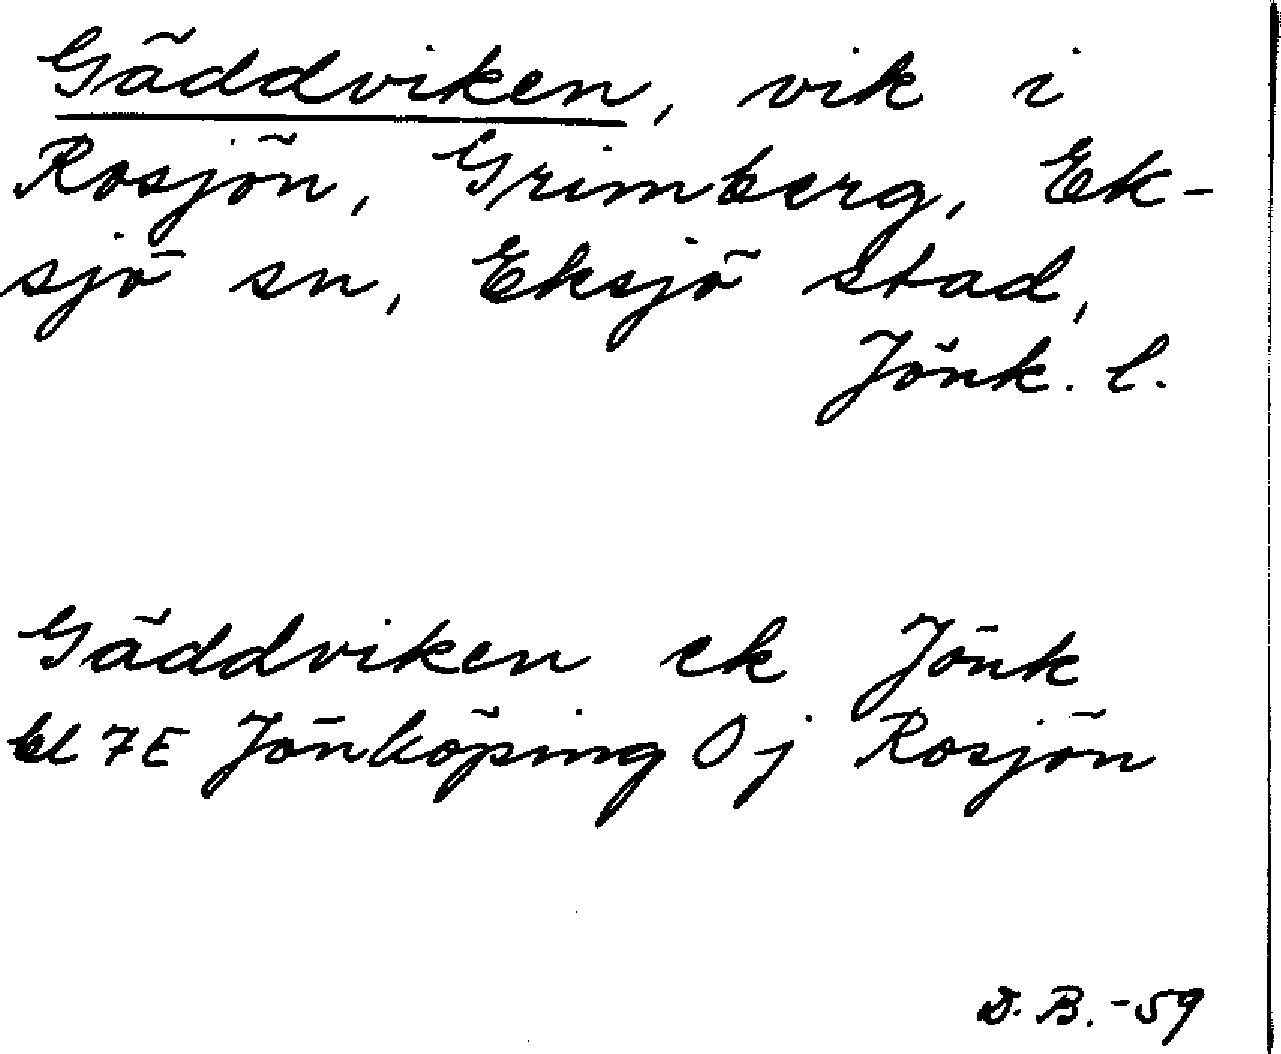 Gäddviken, vik i
Rosjön, Grimberg, Ek-
sjö sn, Eksjö stad,
Jönk. l.
Gäddviken ek Jönk
bl 7E Jönköping Oj Rosjön
D. B. -59